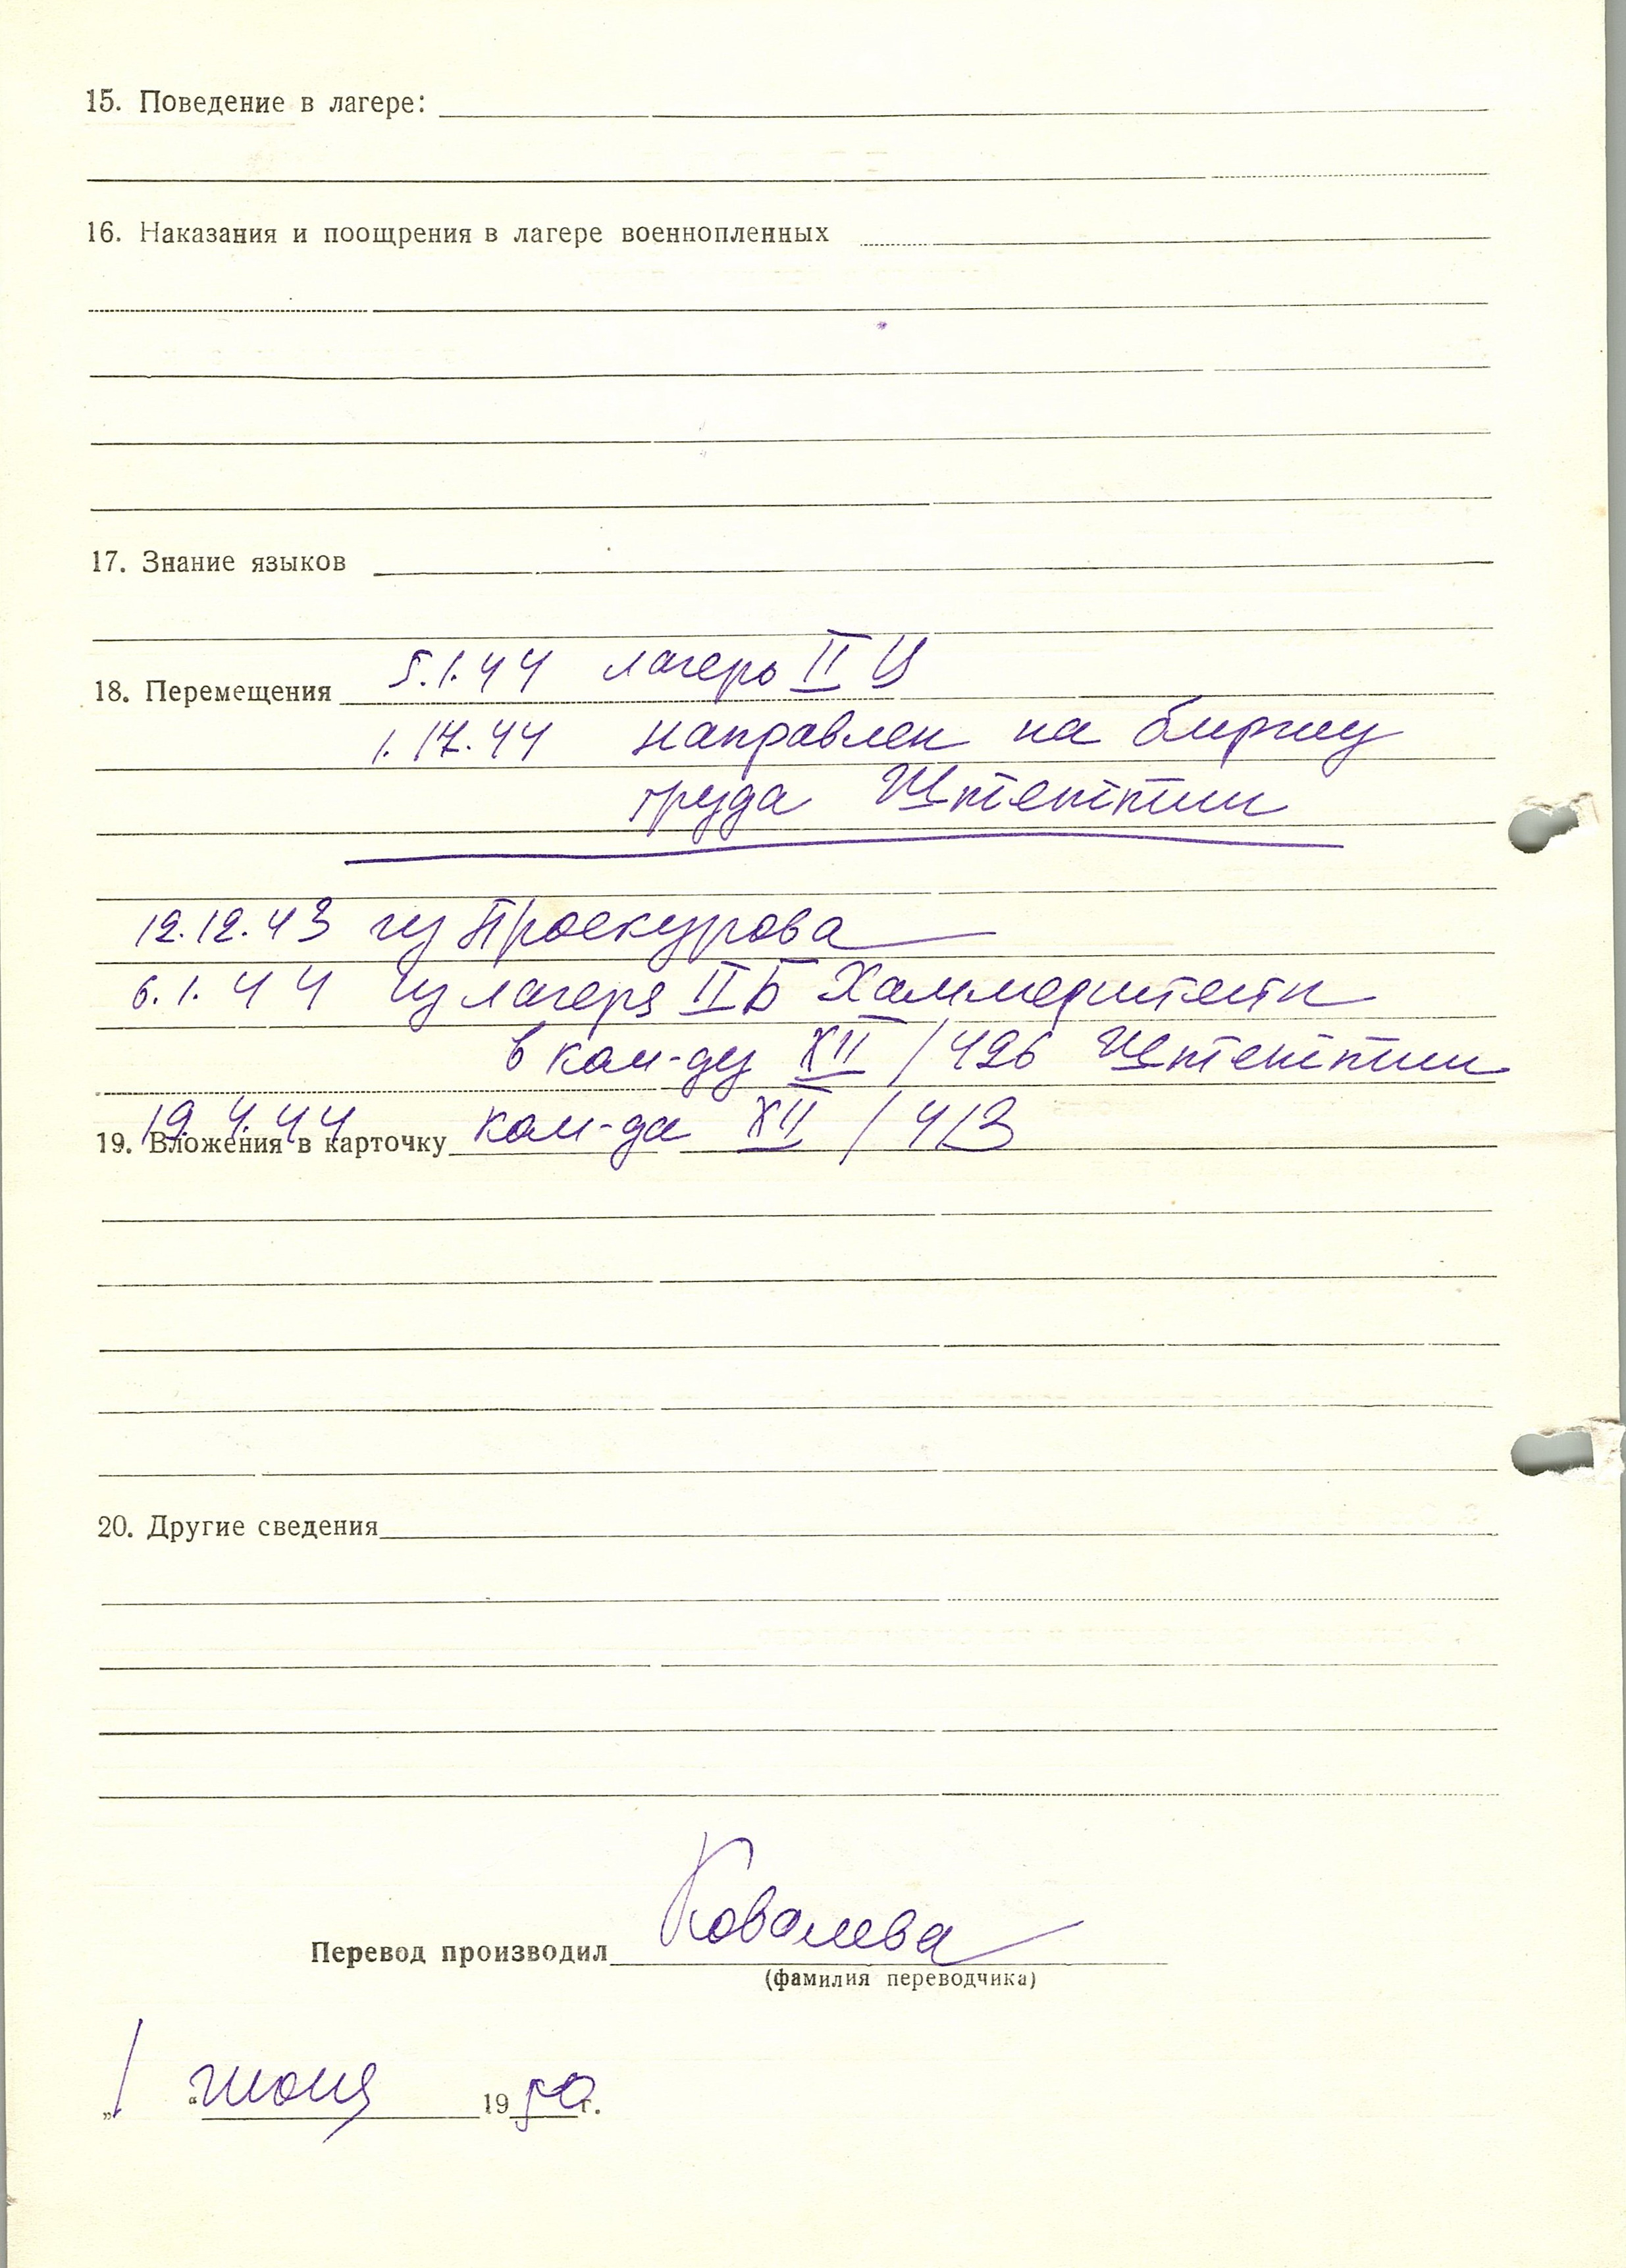 15. Поведение в лагере:
16. Наказания и поощрения в лагере военнопленных
17. Знание языков
5.1.44 лагерь II Ц
18. Перемещения
1.17.44 направлен на биржу
труда Штеттин
12.12.43 из Проскурова
6.1.44 из лагеря II Б Хаммерштейн
в ком-ду XII / 426 Штеттин
19.4.44 ком-да XII / 413
19. Вложения в карточку
20. Другие сведения
Ковалева
Перевод производил
(фамилия переводчика)
„1 “ июня 1950 г.